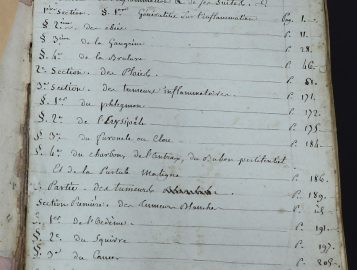 de l'inflammation & de ses suites
1ere Section. §. 1er Généralités sur l'inflammation Pag. 1.
§. 2eme des abcès P. 11.
§. 3eme de la Gangrène P. 28.
§. 4me de la Brulure P. 46.
2e Section. Des Plaies. P. 61.
3e Section. des tumeurs inflammatoires. P. 171.
§. 1er du phlegmon P. 172.
§. 2e De l'Erysipèle P. 175.
§. 3e du Furoncle ou Clou P. 184.
§. 4e du charbon, de l'Antrax, du Bubon pestilentiel
et de la Pustule Maligne P. 186.
Partie. des tumeurs P. 189.
Section Première. des Tumeurs Blanches P.
§. 1er de l'Oedème P. 191.
§. 2e du Squirre P. 197.
§. 3e du Cancer P. 205.